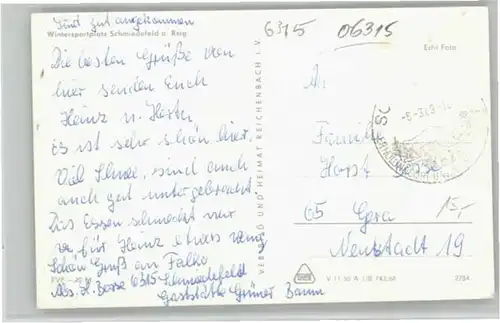 Sind gut angekommen
Wintersportplatz Schmiedefeld a. Rstg.
Die besten Grüße von
hier senden Euch
Heinz u. Herta
Es ist sehr schön hier.
Viel Schnee, sind auch
auch gut untergebracht
Das Essen schmeckt nur
für Heinz etwas wenig
Schön Gruß an Falko
Abs. H. Bosse 6315 Schmiedefeld
Gaststätte Grüner Baum
VERLAG UND HEIMAT REICHENBACH I. V.
6315
06315
Echt Foto
An
Familie
Horst Bosse
65 Gera
Neustadt 19
15,-
V 11 50 A 1/B 743/68
2784